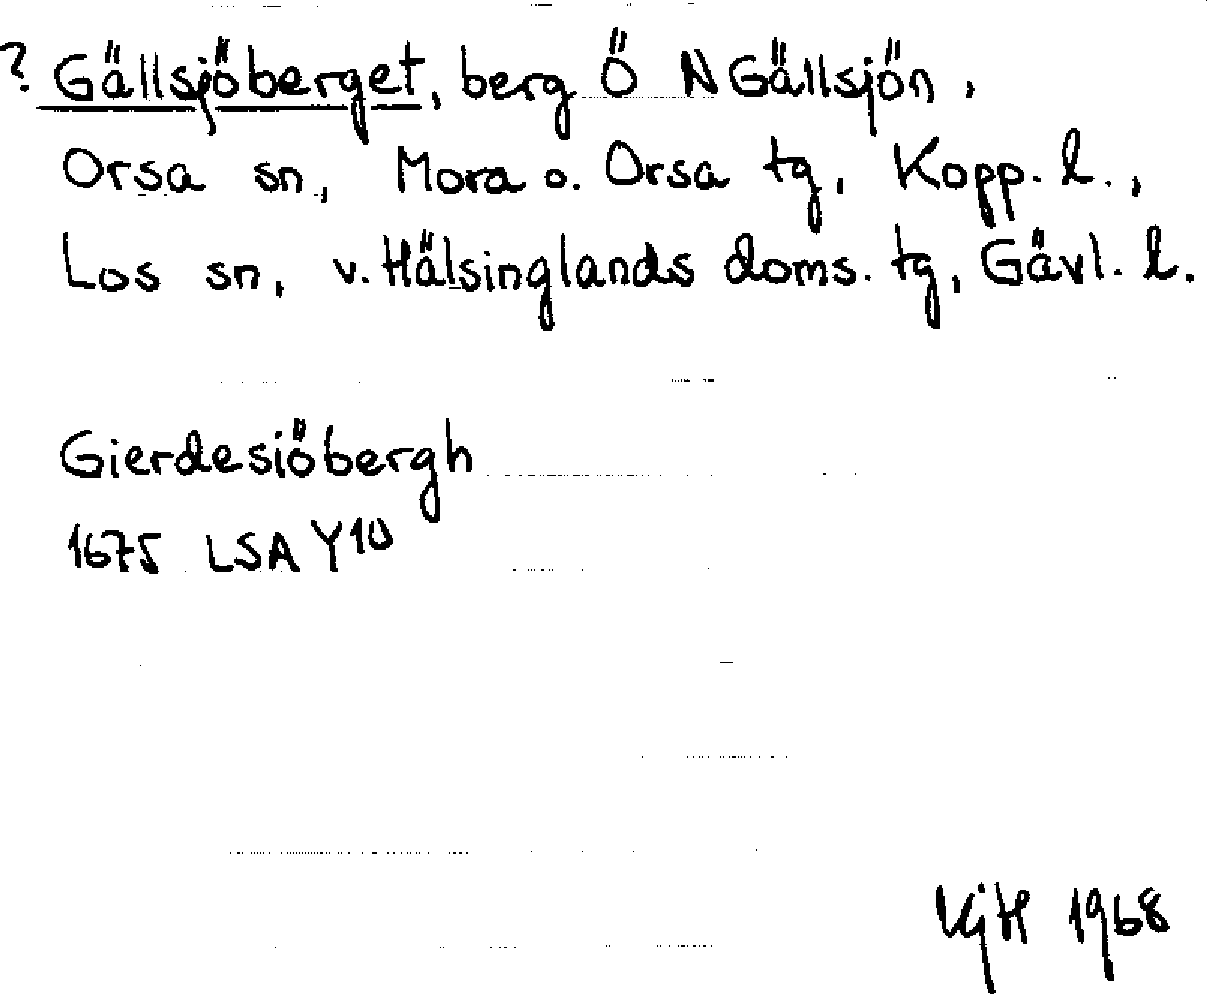 ? Gällsjöberget, berg Ö N Gällsjön,
Orsa sn., Mora o. Orsa tg, Kopp. l.,
Los sn, v. Hälsinglands doms. tg, Gävl. l.
Gierdesiöbergh
1675 LSA Y10
1968